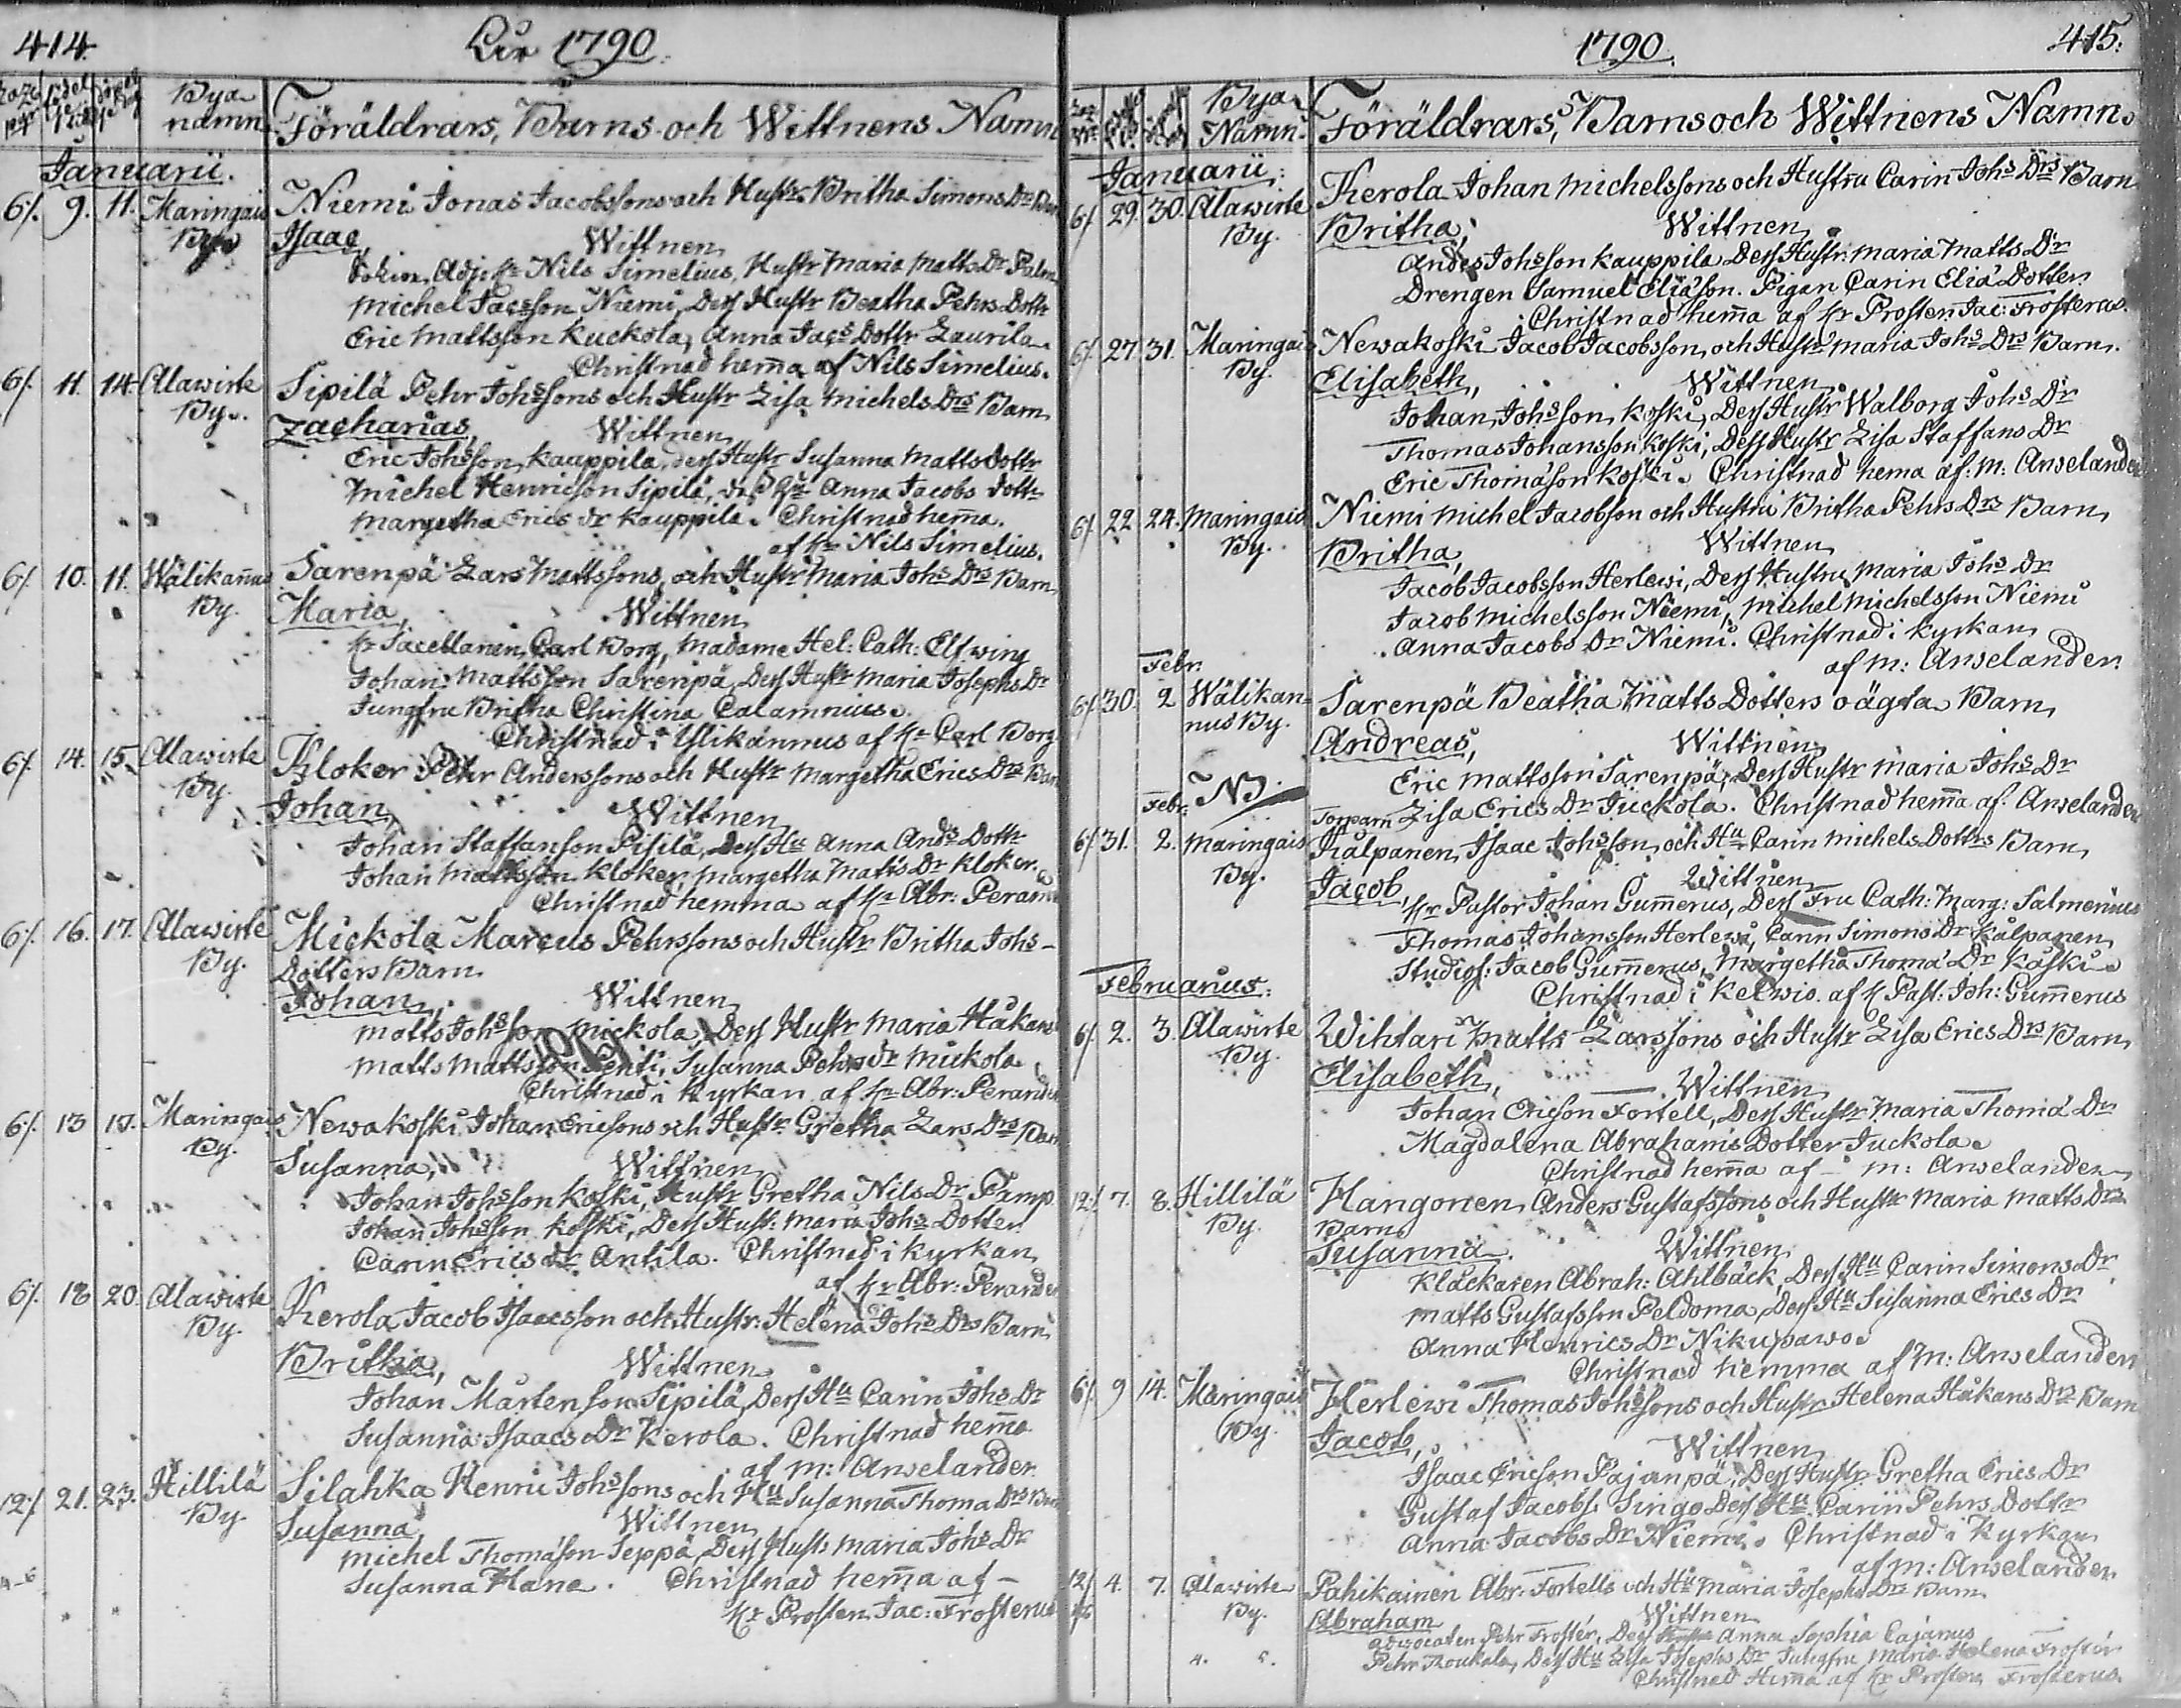 414.
Åhr 1790.
Bya
namn
Föräldrars, Barns och Wittnens Namn
Januarii.
6/. 9. 11. Maringais Niemi Jonas Jacobssons och Hustr Britha Simons Dr Barn
By Isaac, Wittnen
Adj: Hr Nils Simelius, Hustr Maria Matts Dr Palm
Michel Jacsson Niemi, Dess Hustr Beatha Pehrs Dottr
Eric Mattsson Kuckola, Anna Jacs Dottr Laurila
Christnad hema af Nils Simelius.
6/. 11. 14. Alawirte Sipilä Pehr Johssons och Hustr Lisa Michels Drs Barn
By. Zacharias, Wittnen
Eric Johsson Kauppila, dess Hustr Susanna Matts dottr
Michel Henricson Sipilä, Anna Jacobs dottr
Margetha Erics dr Kauppila. Christnad hema.
af Hr Nils Simelius.
6/. 10. 11. Wälikanus Sarenpä Lars Mattssons, och Hustr Maria Johs Drs Barn
By. Maria, Wittnen
Hr Sacellanen Carl Borg, Madame Hel: Cath: Elfwing
Johan Mattsson Sarenpä, Dess Hustr Maria Josephs Dr
Jungfru Britha Christina Calamnius.
Christnad i Ylikannus af Hr Carl Borg
6/. 14. 15. Alawirte Kloker Pehr Anderssons och Hustr Margetha Erics Drs Bar
By. Johan, Wittnen
Johan Staffanson Pisilä, Dess Hu Anna Ands Dottr
Johan Mattsson Kloker, Margetha Matts Dr Kloker.
Christnad hemma af Hr Abr: Perander
6/. 16. 17. Alawirte Mickola Marcus Pehrssons och Hustr Britha Johs-
By. Dotters Barn
Johan, Wittnen
Matts Johsson Mickola, Dess Hustr Maria Håkans
Matts Mattsson Penti, Susanna Pehrs dr Mickola
Christnad i Kyrkan af Hr Abr: Perander
6/. 13 17. Maringais Newakoski Johan Ericsons och Hustr Gretha Lars Drs Barn
By. Susanna, Wittnen
Johan Johsson Koski, Hustr Gretha Nils Dr Pamp
Johan Johsson Koski, Dess Hust: Maria Johs Dotter
Carin Erics dr Antila. Christnad i Kyrkan
af Hr Abr: Perander
6/. 18 20. Alawirte Kerola Jacob Isaacsson och Hustr: Helena Johs Drs Barn
By. Britha, Wittnen
Johan Mårtenson Sipilä, Dess Hu Carin Johs Dr
Susanna Isaacs Dr Kerola. Christnad hema
af M: Anselander
12/. 21. 23. Hillilä Silahka Henric Johssons och Hu Susanna Thoma Drs Bar
By. Susanna, Wittnen
Michel Thomason Seppä, Dess Hustr Maria Johs Dr
Susanna Hane. Christnad hema af -
Hr Prosten Jac: Frosterus
1790. 415:
Bya
Namn.
Föräldrars, Barns och Wittnens Namn.
Januarii:
6/. 29. 30. Alawirte Kerola Johan Michelssons och Hustru Carin Johs Drs Barn
By. Britha, Wittnen
Anders Johsson Kauppila Dess Hustr: Maria Matts Dr
Drengen Samuel Eliason. Pigan Carin Elia Dotter
Christnad hema af Hr Prosten Jac: Frosterus.
6/. 27. 31. Maringais Newakoski Jacob Jacobsson, och Hustr Maria Johs Drs Barn.
By. Elisabeth, Wittnen
Johan Johsson, Koski, Dess Hustr Walborg Johs Dr
Thomas Johansson Koski, Dess Hustr Lisa Staffans Dr
Eric Thomason Koski. Christnad hema af: M: Anselander
6/. 22 24. Maringais Niemi Michel Jacobson och Hustru Britha Pehrs Drs Barn
By. Britha, Wittnen
Jacob Jacobsson Herlewi, Dess Hustru Maria Johs Dr
Jacob Michelsson Niemi, Michel Michelsson Niemi
Anna Jacobs Dr Niemi. Christnad i Kyrkan
af M: Anselander.
Febr.
6/. 30. 2 Wälikan- Sarenpä Beatha Matts Dotters oägta Barn
nus By. Andreas, Wittnen
Eric Mattsson Sarenpä, Dess Hustr Maria Johs Dr
NB. Lisa Erics Dr Juckola. Christnad hema af. Anselander
Febr.
6/. 31. 2. Maringais Kälpanen, Isaac Johsson, och Hu Carin Michels Dottrs Barn
By. Jacob, Wittnen
Hr Pastor Johan Gumerus, Dess Fru Cath: Marg: Salmenius
Thomas Johansson Herlewi, Carin Simons Dr Kälpanen
Studios: Jacob Gumerus, Margetha Thoma Dr Koski
Christnad i Kelwio af H Past: Joh: Gumerus
Februarius:
6/. 2. 3. Alawirte Wihtari Matts Larssons och Hustr Lisa Erics Drs Barn
By. Elisabeth, Wittnen
Johan Ericson Fortell, Dess Hustr Maria Thoma Dr
Magdalena Abrahams Dotter Juckola.
Christnad hema af - M: Anselander
12:/. 7. 8. Hillilä Hangonen, Anders Gustafssons och Hustr Maria Matts Drs
By. Barn
Susanna. Wittnen
Klåckaren Abrah: Ahlbäck, Dess Hu Carin Simons Dr
Matts Gustafsson Peldoma, Dess Hu Susanna Erics Dr
Anna Henrics Dr Nikupawo.
Christnad hemma af M: Anselander
6/. 9 14. Maringais Herlewi Thomas Johssons och Hustr Helena Håkans Drs Barn
By. Jacob, Wittnen
Isaac Ericson Pajanpä, Dess Hustr Gretha Erics Dr
Gustaf Jacobs. Singo Dess Hu Carin Pehrs Dottr
Anna Jacobs Dr Niemi. Christnad i Kyrkan
af M: Anselander.
12/. 4. 7. Alawirte Pahikainen Abr: Fortells och Hu Maria Josephs Drs Barn
By. Abraham Wittnen
Advocaten Pehr Froster, Dess Anna Sophia Cajanus
Pehr Roukala, Dess Hu Lisa Josephs Dr Jungfru Maria Helena Froster
Christnad Hema af Hr Prosten Frosterus